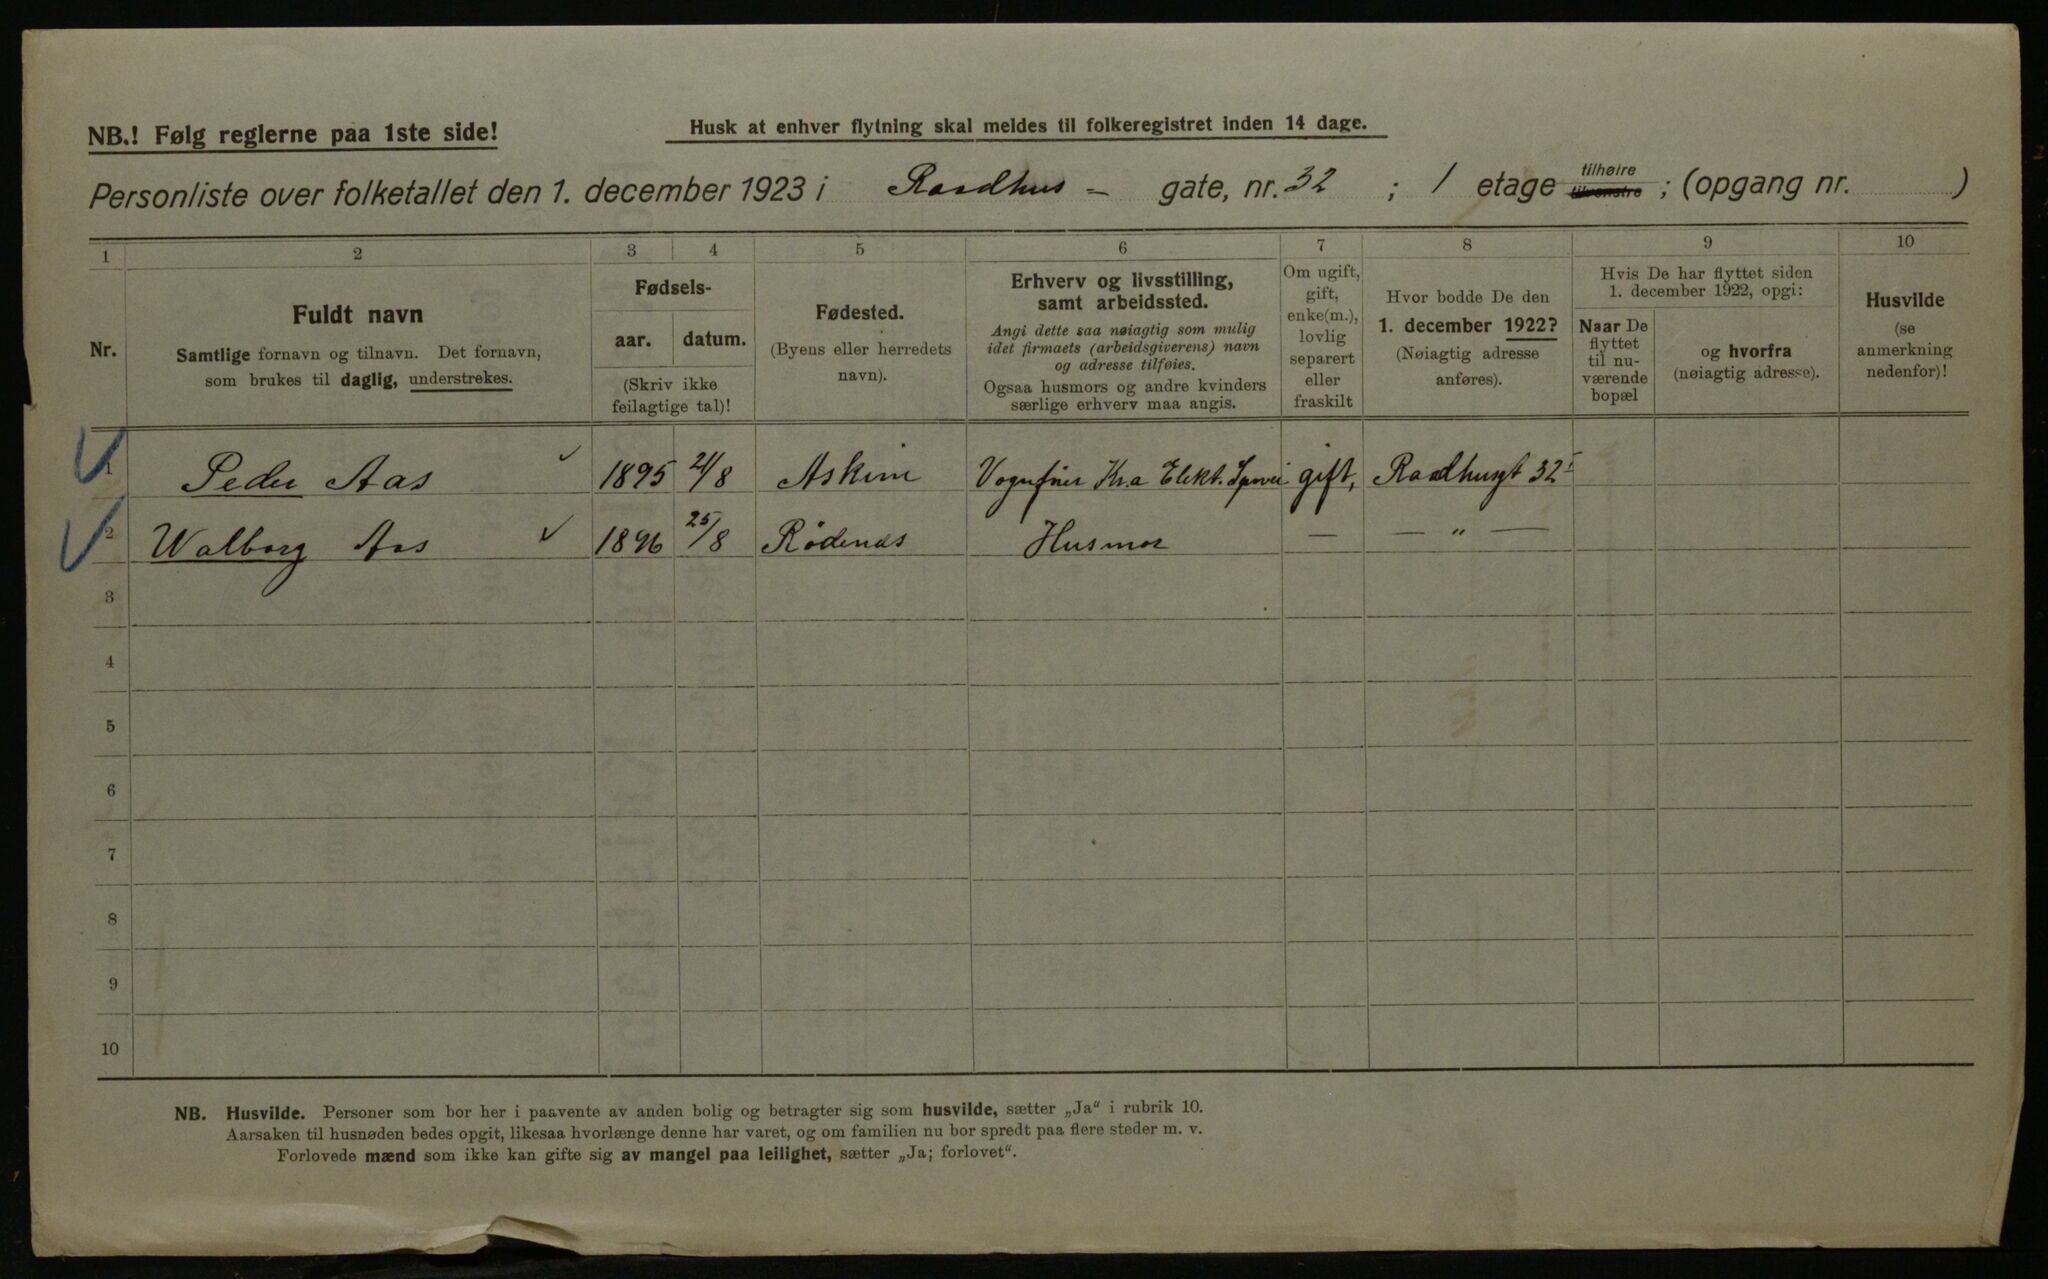 NB.! Følg reglerne paa 1ste side!
Husk at enhver flytning skal meldes til folkeregistret inden 14 dage.
Personliste over folketallet den 1. december 1923 i Raadhus- gate, nr. 32 ; 1 etage tilhøire tilvenstre ; (opgang nr. )
1 2 3 4 5 6 7 8 9 10
Nr.
Fuldt navn
Samtlige fornavn og tilnavn. Det fornavn,
som brukes til daglig, understrekes.
Fødsels-
aar. datum.
(Skriv ikke
feilagtige tal)!
Fødested.
(Byens eller herredets
navn).
Erhverv og livsstilling,
samt arbeidssted.
Angi dette saa nøiagtig som mulig
idet firmaets (arbeidsgiverens) navn
og adresse tilføies.
Ogsaa husmors og andre kvinders
særlige erhverv maa angis.
Om ugift,
gift,
enke(m.),
lovlig
separert
eller
fraskilt
Hvor bodde De den
1. december 1922?
(Nøiagtig adresse
anføres).
Hvis De har flyttet siden
1. december 1922, opgi:
Naar De
flyttet
til nu-
værende
bopæl
og hvorfra
(nøiagtig adresse).
Husvilde
(se
anmerkning
nedenfor)!
1 Peder Aas 1895 21/8 Askim Vognfører Kr.a Elekt. Sporvei gift, Raadhusgt 32 I
2 Walborg Aas 1896 25/8 Rødenæs Husmor — — " —
3
4
5
6
7
8
9
10
NB. Husvilde. Personer som bor her i paavente av anden bolig og betragter sig som husvilde, sætter „Ja“ i rubrik 10.
Aarsaken til husnøden bedes opgit, likesaa hvorlænge denne har varet, og om familien nu bor spredt paa flere steder m. v.
Forlovede mænd som ikke kan gifte sig av mangel paa leilighet, sætter „Ja; forlovet“.